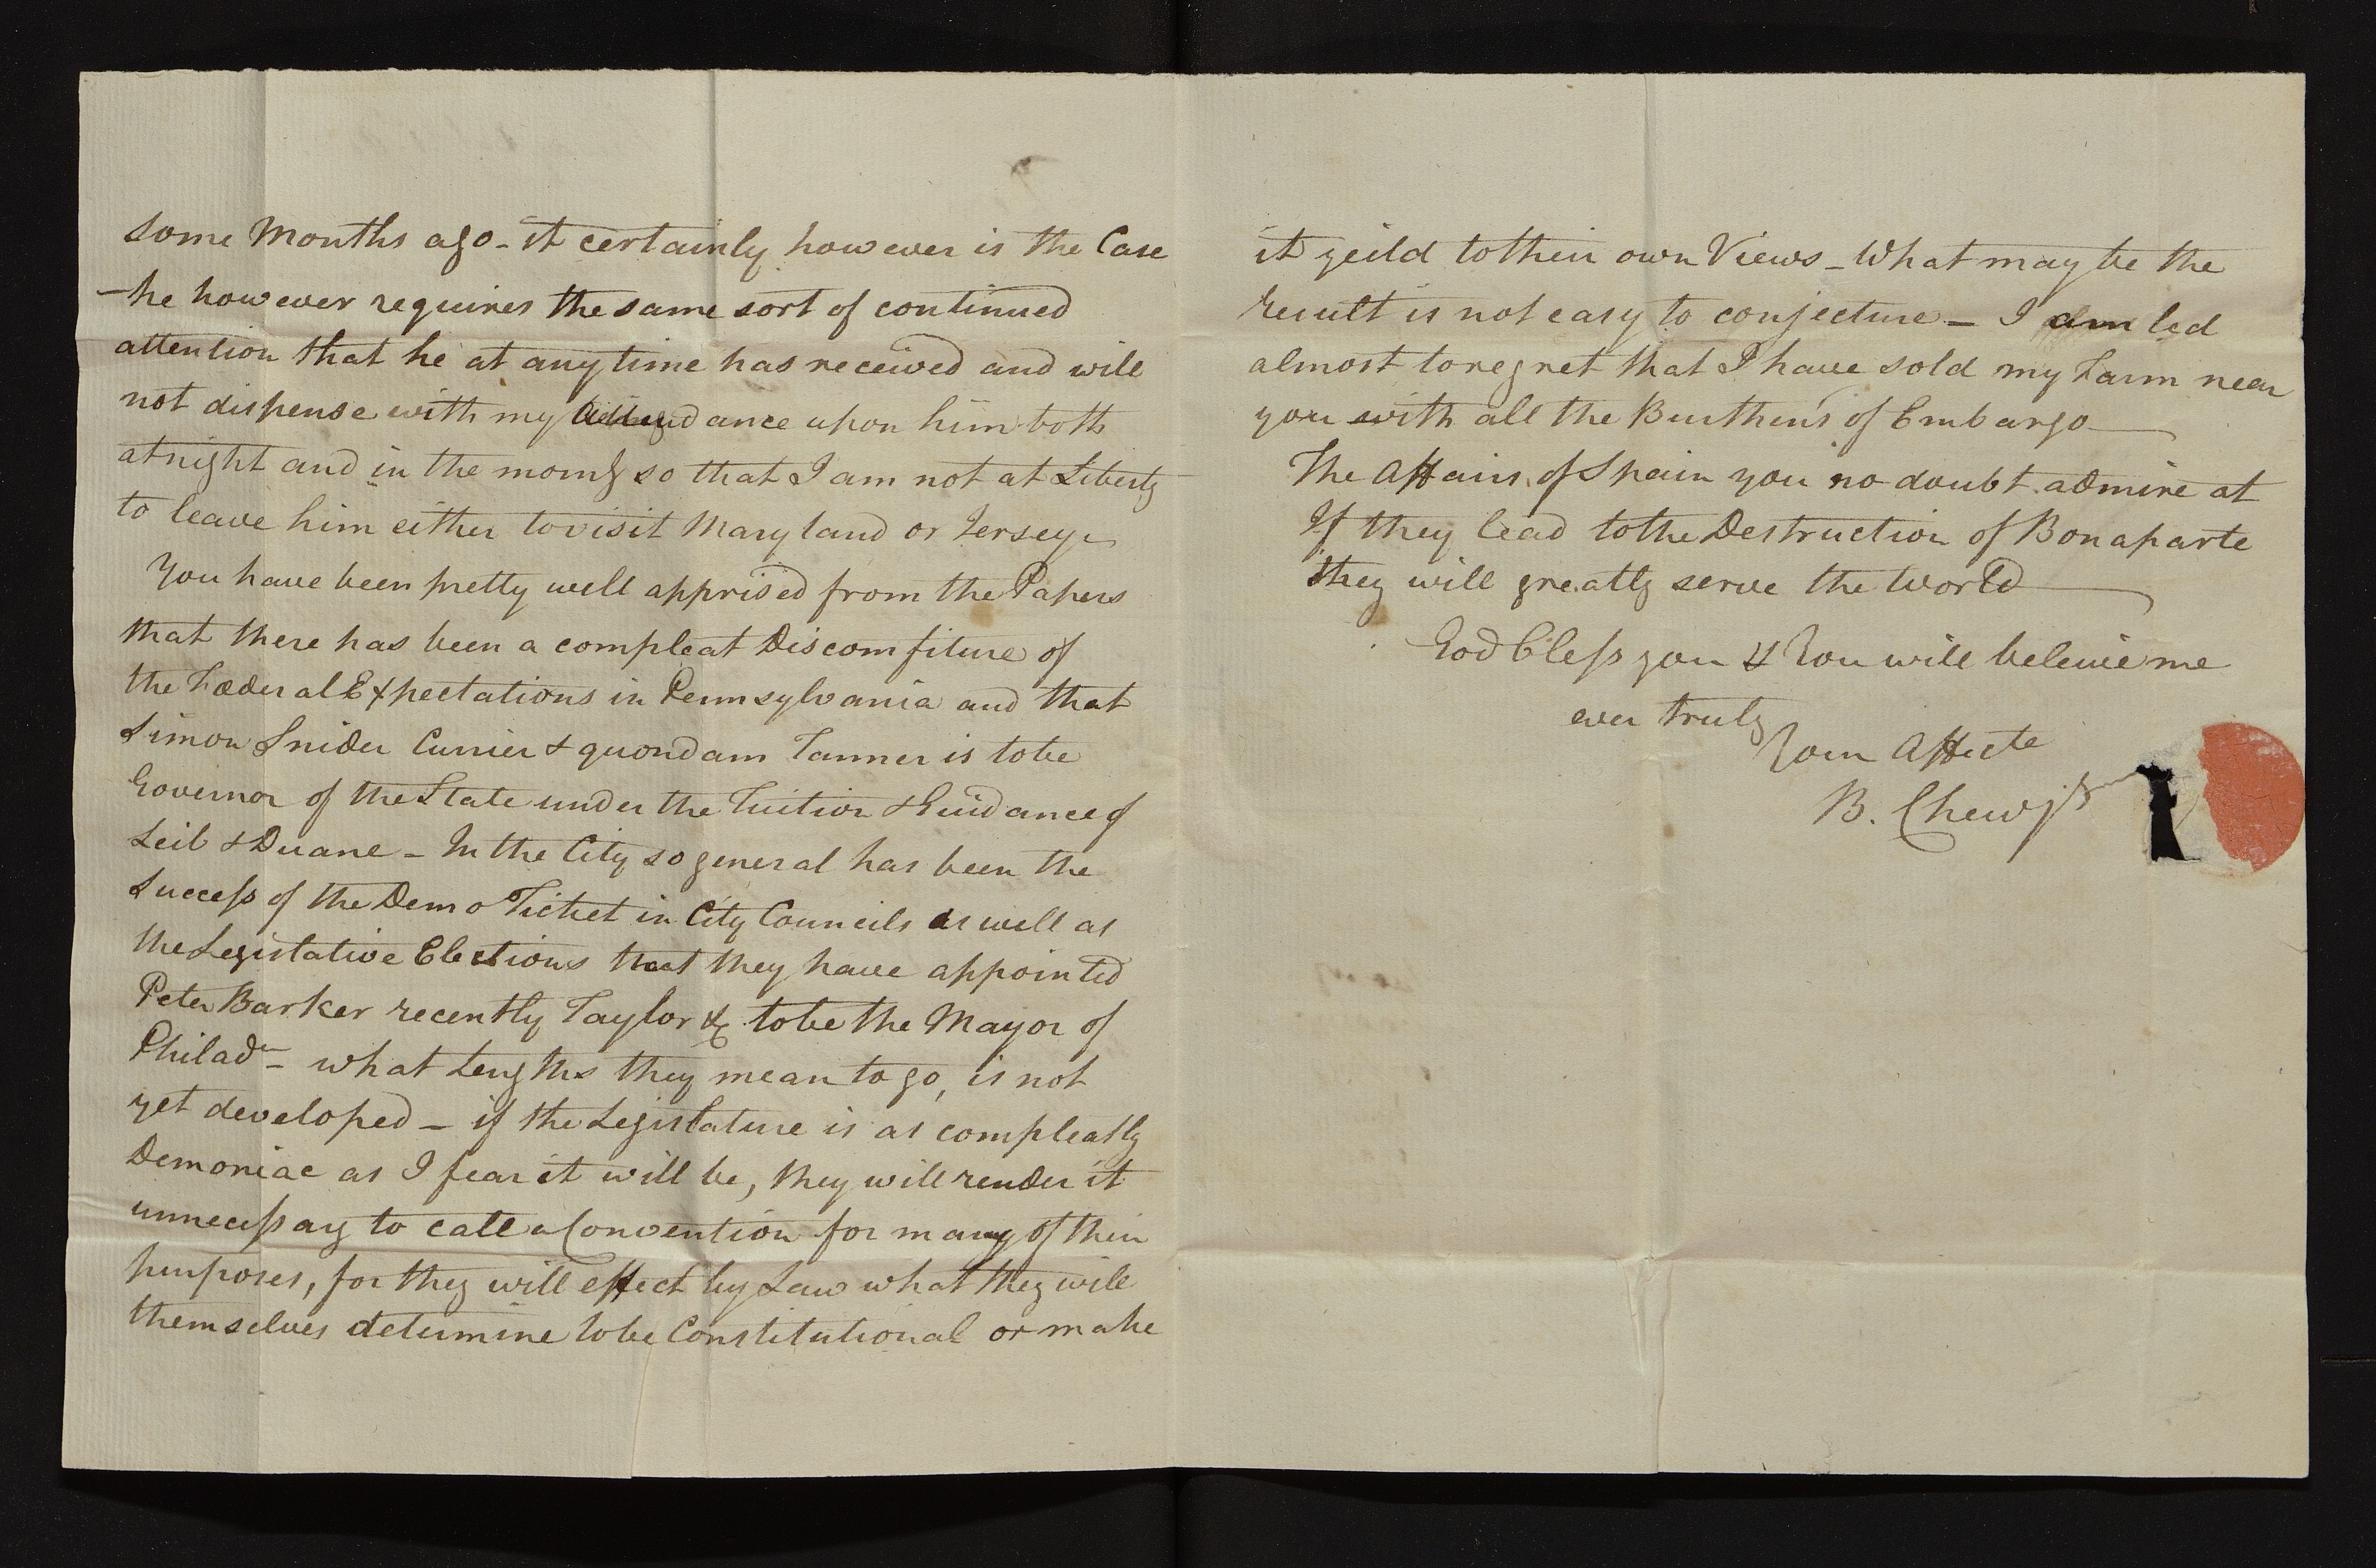 some Months ago - it certainly however is the Case
- he however requires the same sort of continued
attention that he at any time has received and will
not dispense with my Attendance upon him both
at night and in the morng so that I am not at Liberty
to leave him either to visit Maryland or Jersey -
You have been pretty well apprised from the Papers
that there has been a compleat Discomfiture of
the Fœderal Expectations in Pennsylvania and that
Simon Snider Currier & quondam Tanner is to be
Governor of the State under the Tuition & Guidance of
Leib & Duane - In the City so general has been the
Success of the Demo Ticket in City Councils as well as
the Legislative Elections that they have appointed
Peter Barker recently Taylor &c to be the Mayor of
Philada - what Lengths they mean to go, is not
yet developed - if the Legislature is as compleatly
Demoniac as I fear it will be, they will render it
unnecessary to call a Convention for many of their
purposes, for they will effect by Law what they will
themselves determine to be Constitutional or make
it yeild to their own Views - What may be the
result is not easy to conjecture - I am led
almost to regret that I have sold my Farm near
you with all the Burthens of Embargo
The Affairs of Spain you no doubt admire at
If they lead to the Destruction of Bonaparte
they will greatly serve the World
God bless you & You will beleive me
ever truly
Your Affecte
B. Chew jr